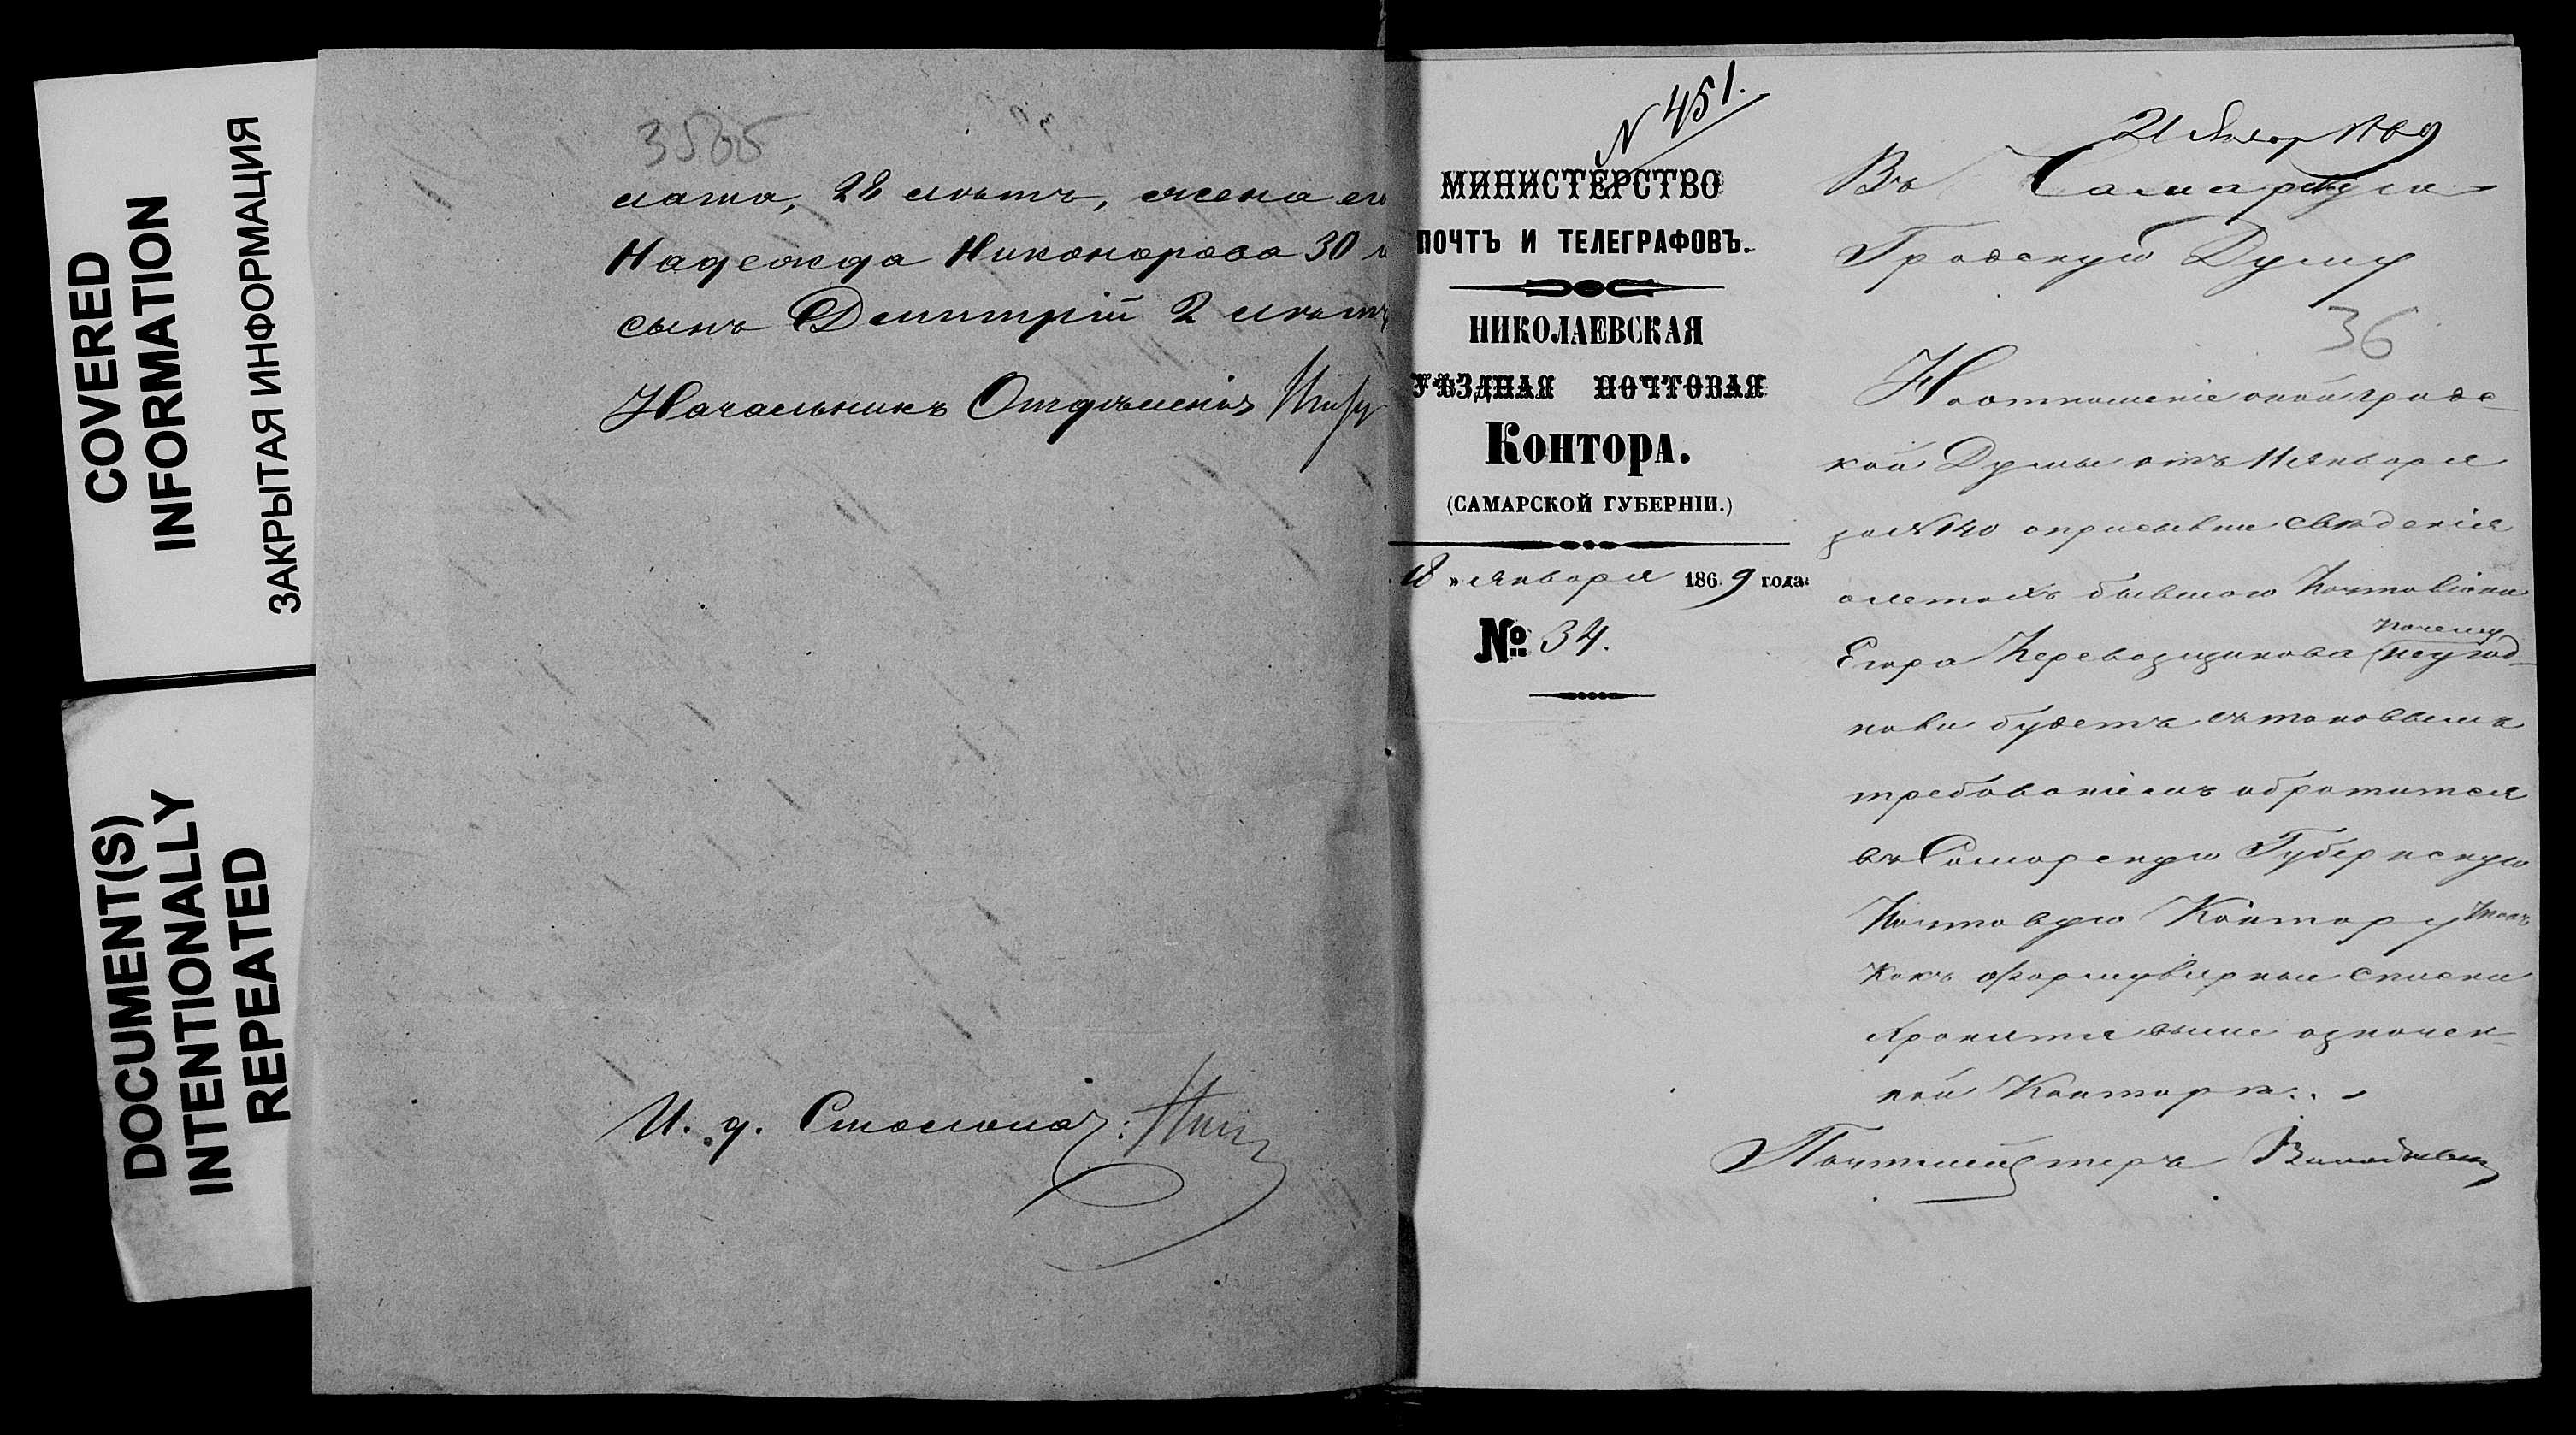 COVERED
INFORMATION
ЗАКРЫТАЯ ИНФОРМАЦИЯ
DOCUMENT(S)
INTENTIONALLY
REPEATED
35об
лата, 28 лѣтъ, жена его
Надежда Никонорова 30 л
сынъ Дмитрій 2 лѣтъ
Начальникъ Отдѣленія
И. д. Столонач:
N 451.
МИНИСТЕРСТВО
ПОЧТЪ И ТЕЛЕГРАФОВЪ.
НИКОЛАЕВСКАЯ
УѢЗДНАЯ ПОЧТОВАЯ
КОНТОРА.
(САМАРСКОЙ ГУБЕРНІИ.)
18 » января 1869 года
№ 34.
21 Январ 1869
Въ Самарскую
Градскую Думу
36
На отношеніе оной градс-
кой Думы отъ 11 января
за № 140 о присылки сведенія
о летахъ бывшаго Почталіона
Егора Перевозщикова почему неугод-
ноли будетъ съ таковымъ
требованіемъ обратится
въ Самарскую Губернскую
Почтовую Контору такъ
какъ формулярные списки
хранятся выше означен-
ной Конторѣ..
Почтмейстеръ